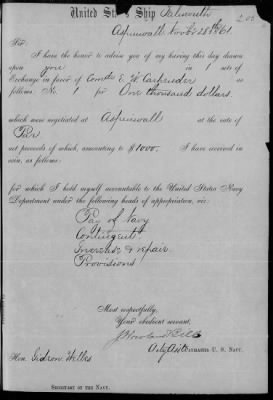 United States Ship Falmouth
205
Aspinwall Novbr 28th 61.
Sir:
I have the honor to advise you of my having this day drawn
upon you in 1 sets of
Exchange in favor of Comdr E. W. Carpender as
follows: No. 1 for One thousand dollars.
which were negotiated at Aspinwall at the rate of
Par
net proceeds of which, amounting to $1000. I have received in
coin, as follows:
for which I hold myself accountable to the United States Navy
Department under the following heads of appropriation, viz:
Pay of Navy
Contingent
Increase & repair
Provisions
Most respectfully,
Your obedient servant,
Paymaster U. S. Navy.
Hon. Gideon Welles
Secretary of the Navy.